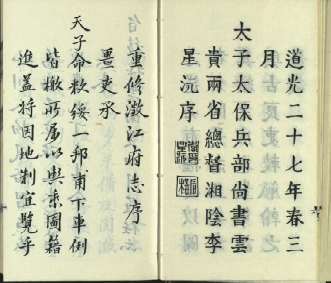 道光二十七年春三
月
太子太保兵部尚書雲
貴兩省總督湘陰李
星沅序
重修澂江府志序
畺吏承
天子命敉綏一邦甫下車例
皆檄所屬以輿乘圖籍
進蓋將因地制宜覽乎